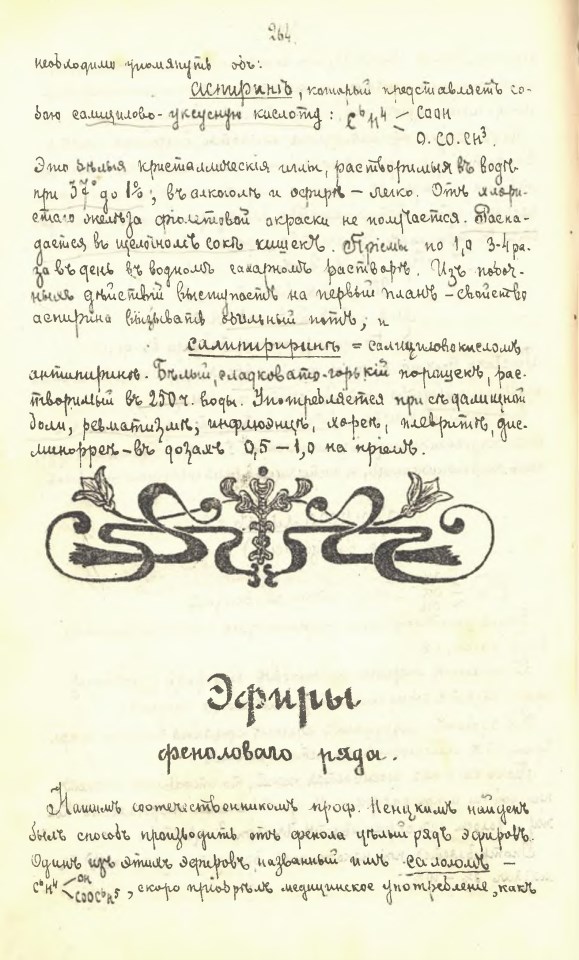 264.
необходимо упомянуть объ:
Аспиринѣ, который представляетъ со-
бою салицилово-уксусную кислоту: C⁶H⁴ < COOH
O.CO.CH³.
Это бѣлыя кристаллическія иглы, растворимыя въ водѣ
при 37° до 1%; въ алкоголѣ и эфирѣ – легко. Отъ хлори-
стаго желѣза фіолетовой окраски не получается. Распа-
дается въ щелочномъ сокѣ кишекъ. Пріемы по 1,0 3-4 ра-
за въ день въ водномъ сахарномъ растворѣ. Изъ побоч-
ныхъ дѣйствій выступаетъ на первый планъ – свойство
аспирина вызывать обильный потъ, и
Салипиринъ = салициловокисломъ
антипиринѣ. Бѣлый, сладковато-горькій порошекъ, рас-
творимый въ 250 ч. воды. Употребляется при сѣдалищной
боли, ревматизмѣ, инфлюэнцѣ, хореѣ, плевритѣ, дис-
миноррее – въ дозахъ 0,5 – 1,0 на пріемъ.
Эфиры
феноловаго ряда.
Нашимъ соотечественникомъ проф. Ненцкимъ найденъ
былъ способъ производить отъ фенола цѣлый рядъ эфировъ.
Одинъ изъ этихъ эфировъ, названный имъ салоломъ –
C⁶H⁴ < OH
COOC⁶H⁵, скоро пріобрѣлъ медицинское употребленіе, какъ